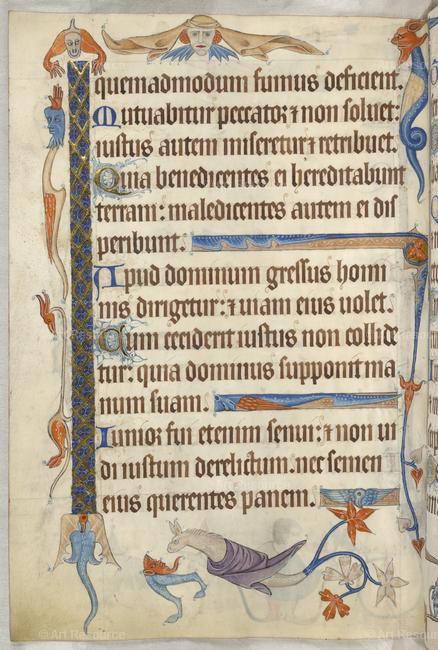 quemadmodum fumus deficient.
Mutuabitur peccator ⁊ non soluet:
iustus autem miseretur ⁊ retribuet.
Quia benedicentes ei hereditabunt
terram: maledicentes autem ei dis
peribunt.
Apud dominum gressus homi
nis dirigetur: ⁊ uiam eius uolet.
Cum ceciderit iustus non collide
tur: quia dominus supponit ma
num suam.
Iunior fui etenim senui: ⁊ non ui
di iustum derelictum. nec semen
eius querentes panem.
© Art Resource
© Art Resource